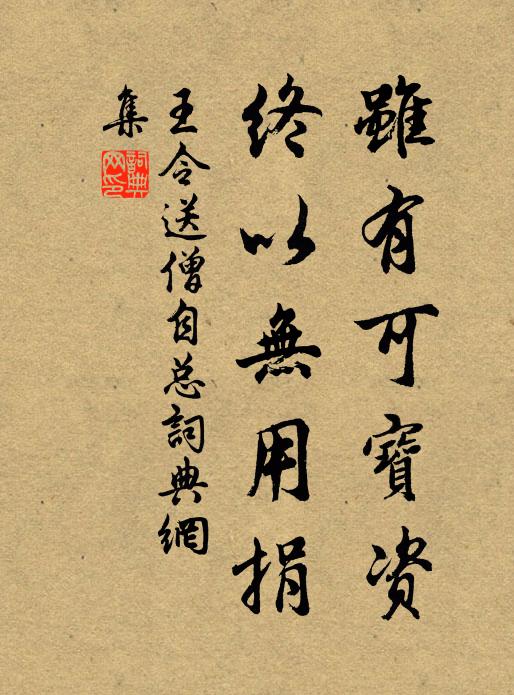 雖有可寶資
終以無用捐
王令送僧自总詞典網
集
詞典
网印